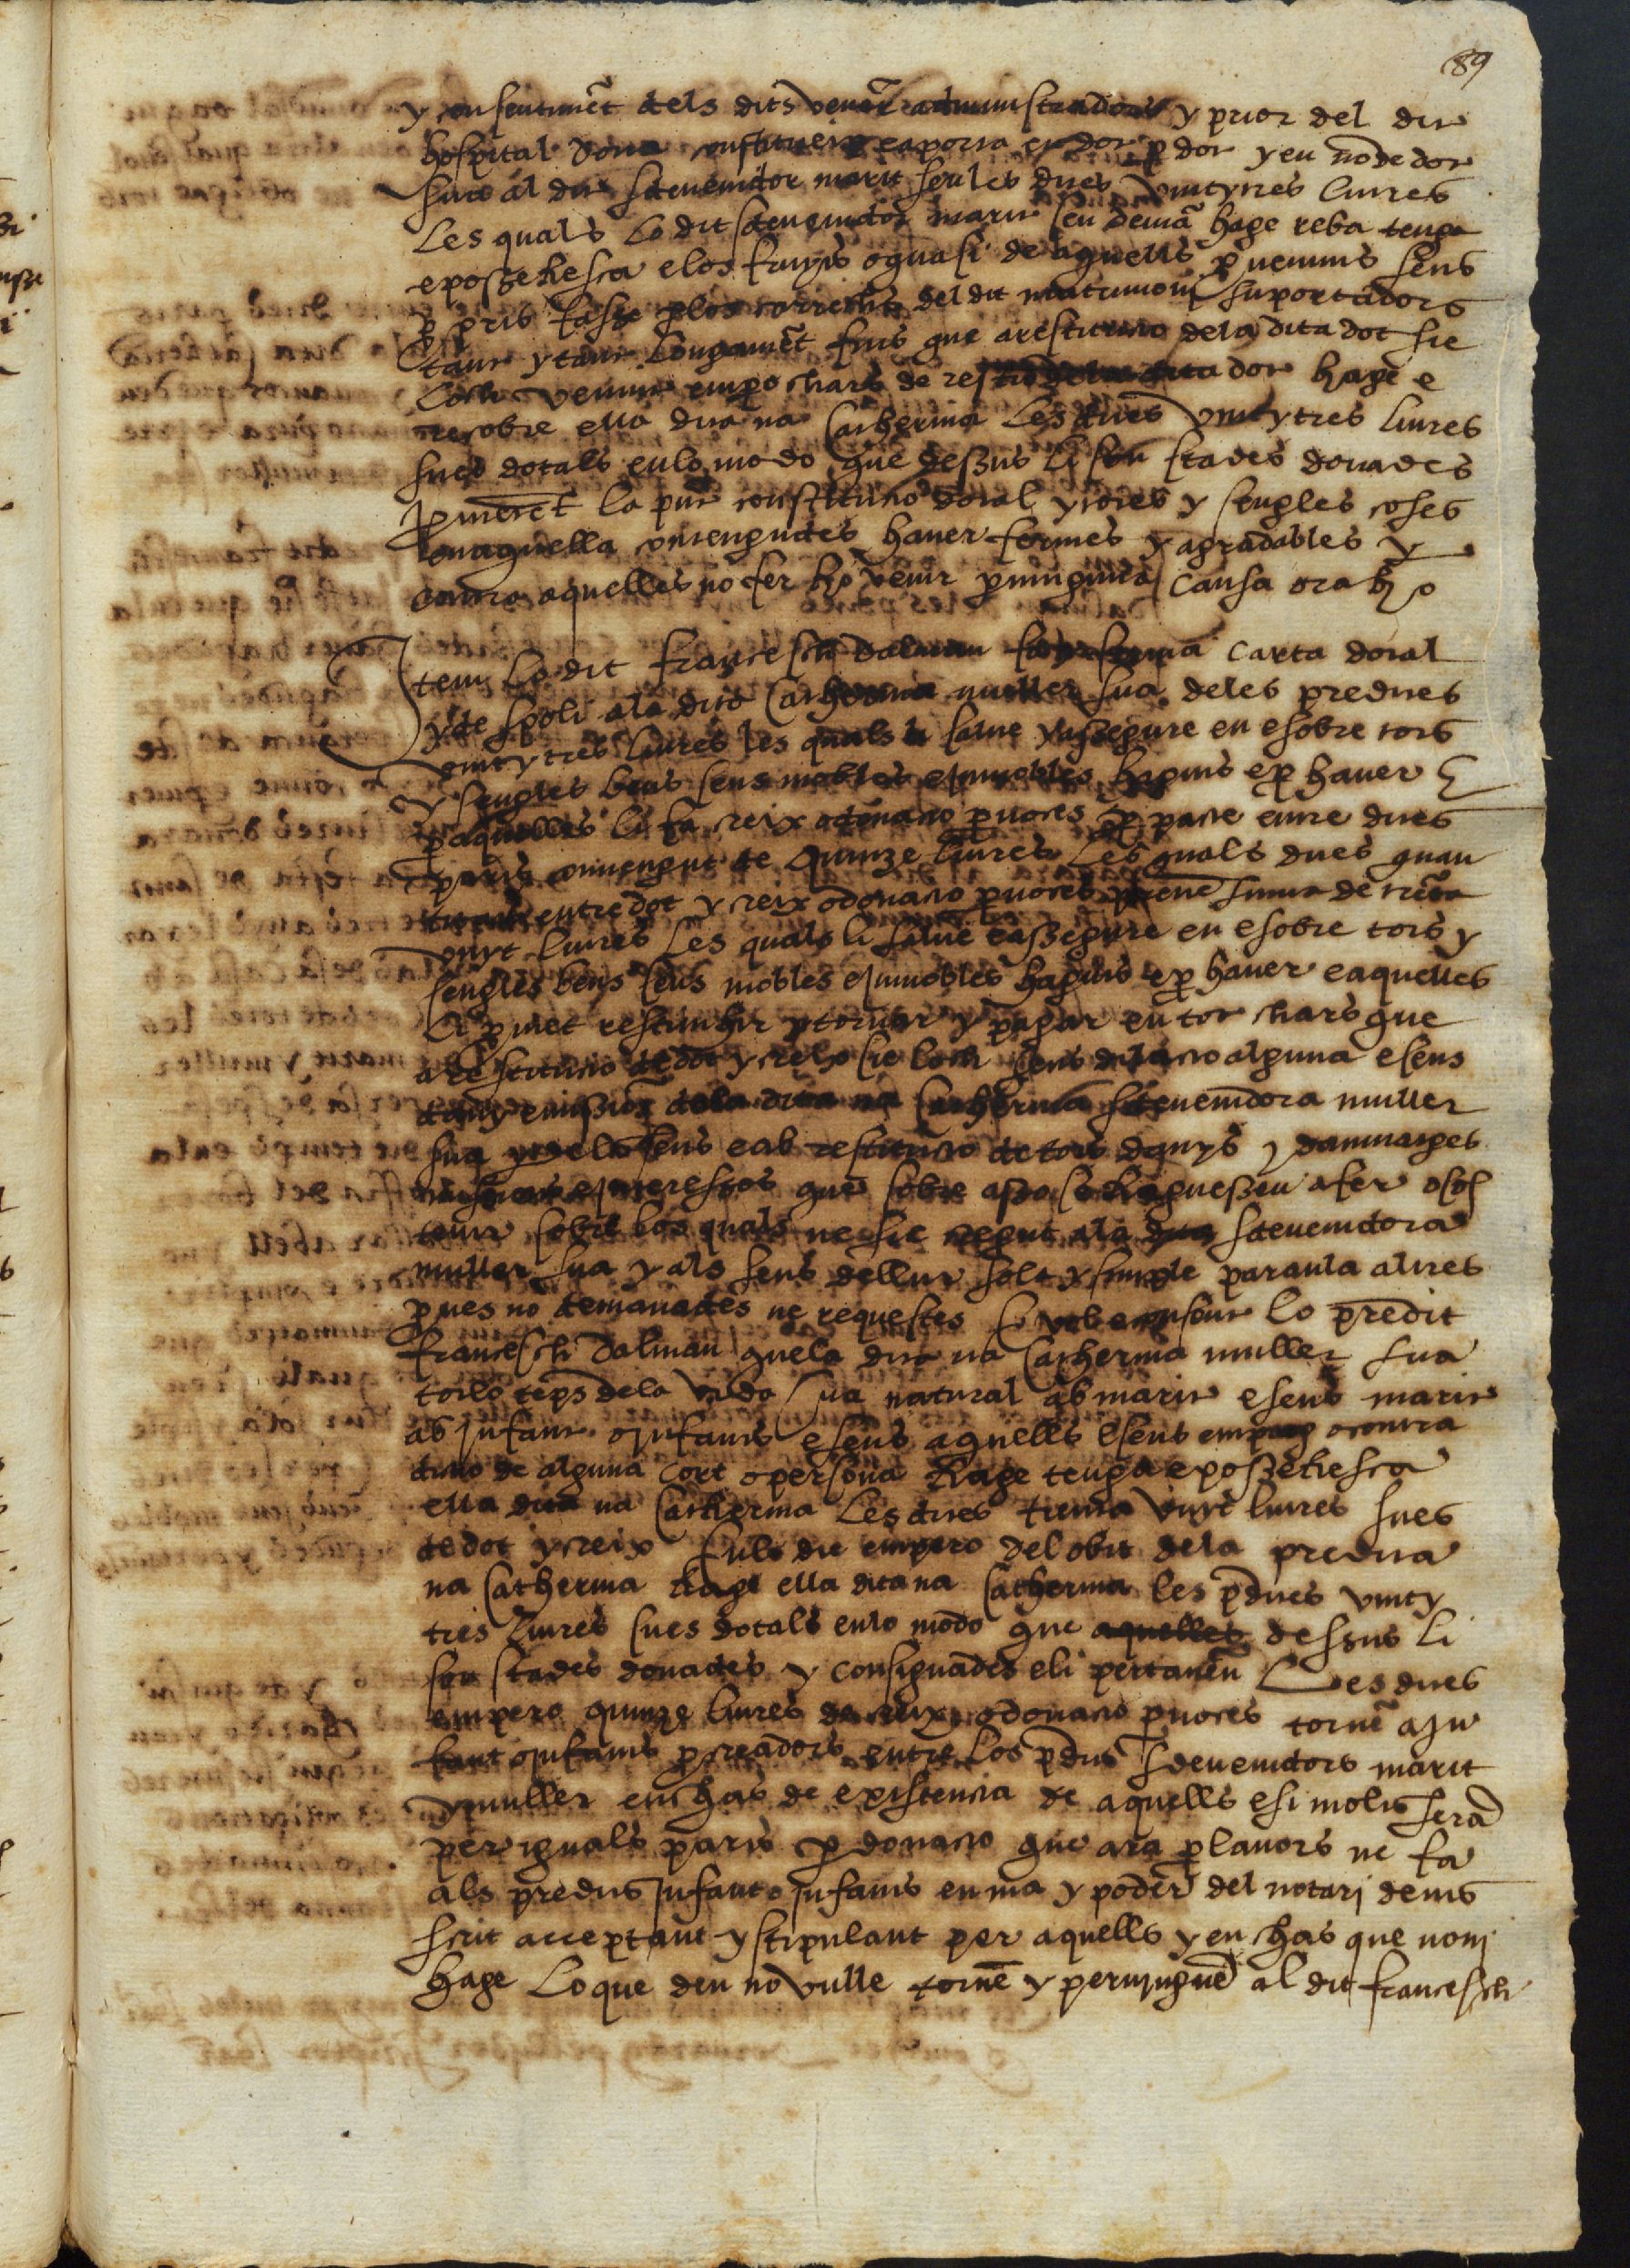 89
y consentimēt dels dits vener administradors y prior del dit
hospital dona constitueix e aporta en dot p dot y en nō de dot
sua al dit sdevenidor marit seu les dites vint y tres liures
Les quals lo dit sdevenidor marit seu demā hage reba tenga
e possehesca e los fruyts o quasi de aquells p̱venints sens
p̱pris fasse p los carrechs del dit matrimoni suportadors
tant y tant longamēt fins que a restitucio dela dita dot sie
loch venint emp̱o lo chas de restio dela dita dot hage e
recobre ella dita na Catherina Les dites vint y tres liures
sues dotals en lo modo que dessus li son stades donades
p̱meret la pñt constitucio dotal y totes y sengles coses
en aquella contengudes haver fermes y agradables y
contra aquelles no fer ho venir p ninguna causa o raho
Item Lo dit francesch dalmau fa y ferma carta dotal
y de spoli ala dita Catherina muller sua deles predites
vint y tres liures les quals li salve y assegure en e sobre tots
y sengles bens seus mobles e inmobles haguts e p̱ haver E
p aquelles li fa creix o donacio p nocес p̱ pacte entre dites
parts convengut de Quinze liures Les quals dites quan
titats entre dot y creix o donacio p noces prenē suma de trēta
vuyt liures Les quals li salve e assegure en e sobre tots y
sengles bens seus mobles e inmobles haguts e p̱ haver e aquelles
li p̱met restituhir y tornar y pagar en tot chars que
a restitucio de dot y creix sie loch sens dilacio alguna e sens
dany e missio dela dita na Catherina sdevenidora muller
sua y dels seus e ab restitucio de tots danys y dampnatges
missions e interessos que sobre aço se haguessen a fer o sos
tenir sobre los quals ne sie cregut ala dita sdevenidora
muller sua y als seus de llur sola y simple paraula altres
p̱ves no demanades ne requestes E vol e consent lo predit
francesch Dalmau que la dita na Catherina muller sua
tot lo tēps dela vida sua natural ab marit e sens marit
ab infant o infants e sens aquells e sens empaig o contra
dictio de alguna cort o persona hage tenga e possehesca
ella dita na Catherina Les dites trenta vuyt liures sues
de dot y creix En lo die empero del obit dela predita
na Catherina hage ella dita na Catherina les p̱dites vint y
tres liures sues dotals en lo modo que aquelles dessus li
son stades donades y consignades e li pertanen Les dites
empero quinze liures de creix o donacio p noces tornē a in
fant o infants p̱creadors entre los p̱dits sdevenidors marit
y muller en chas de existencia de aquells e si molts serā
per iguals parts p donacio que ara p lavors ne fa
als predits infant o infants en ma y poder del notari devis
scrit acceptant y stipulant per aquells y en chas que noni
hage Lo que deu no vulle tornē y pervinguē al dit francesch